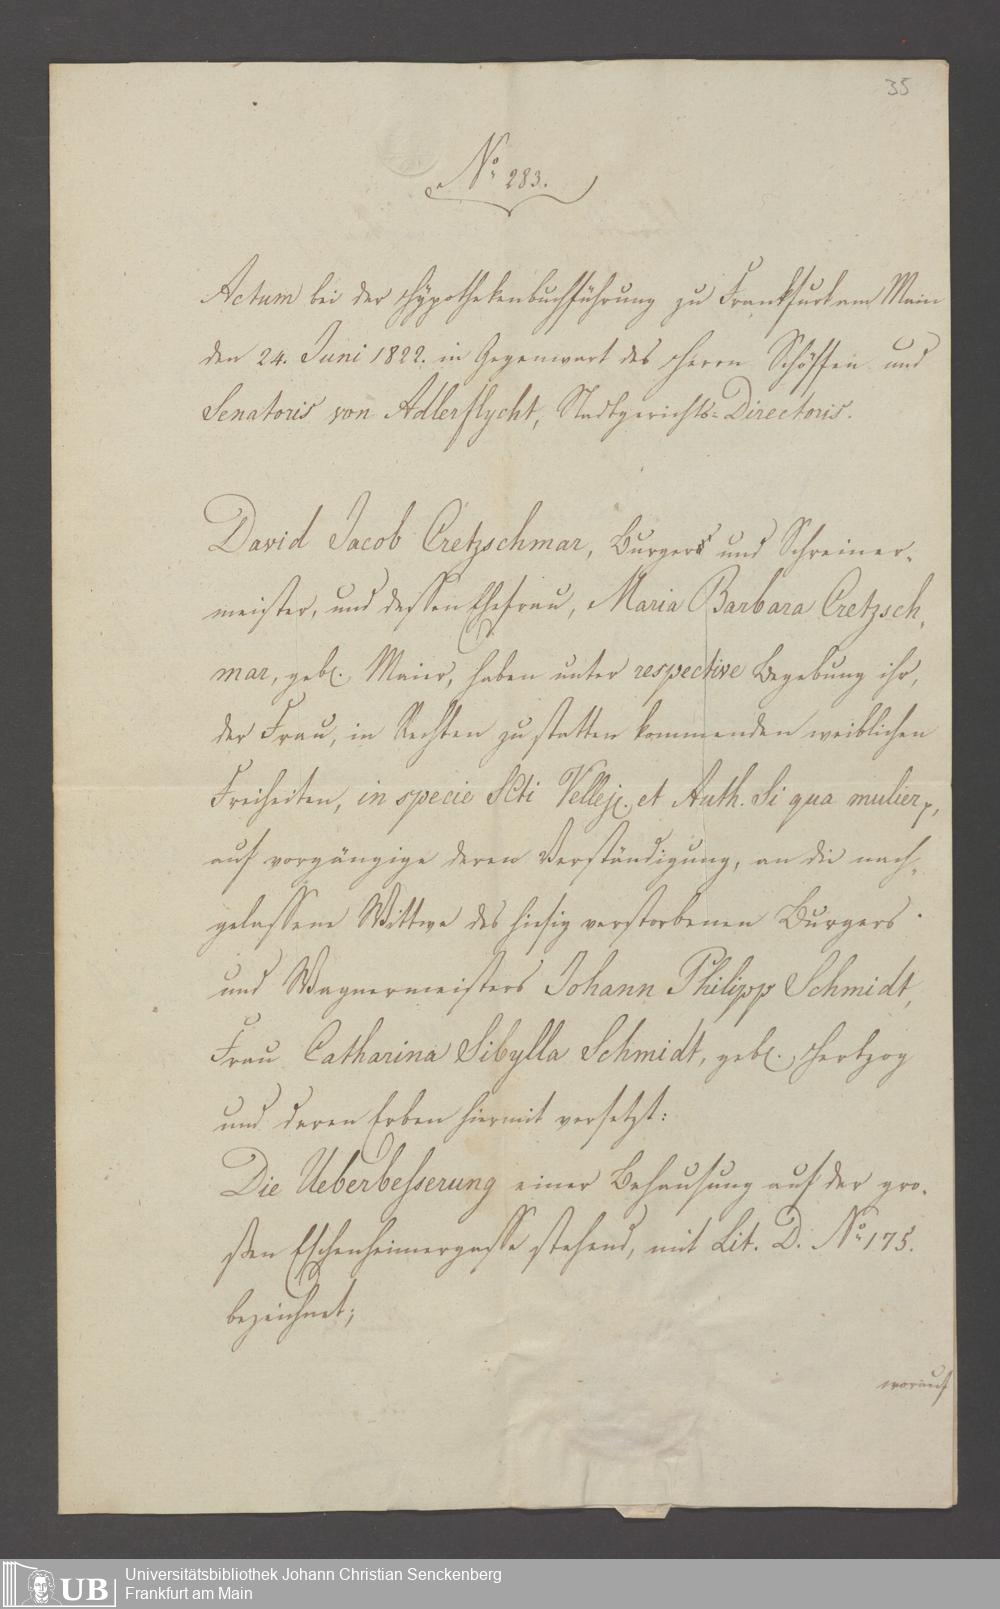 35
No. 283.
Actum bei der Hÿpothekenbuchführung zu Frankfurt am Main
den 24. Juni 1822. in Gegenwart des Herrn Schöffen und
Senatoris von Adlerflycht, Stadtgerichts-Directoris.
David Jacob Cretzschmar, Burger und Schreiner-
meister, und dessen Ehefrau, Maria Barbara Cretzsch-
mar, geb. Maier, haben unter respective Begebung ihr,
der Frau, in Rechten zu statten kommenden weiblichen
Freiheiten, in specie SCti Vellej. et Auth. Si qua mulier
auf vorgängige deren Verständigung, an die nach-
gelassene Wittwe des hiesig verstorbenen Burgers
und Wagnermeisters Johann Philipp Schmidt,
Frau Catharina Sibylla Schmidt, geb. Hertzog
und deren Erben hiermit versetzt:
Die Ueberbesserung einer Behausung auf der gro-
ßen Eschenheimergasse stehend, mit Lit. D. No. 175.
bezeichnet;
worauf
UB
Universitätsbibliothek Johann Christian Senckenberg
Frankfurt am Main